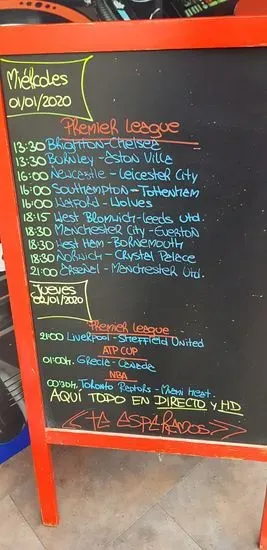 Miércoles
01/01/2020
Premier League
13:30 Brighton-Chelsea
13:30 Burnley-Aston Villa
16:00 Newcastle-Leicester City
16:00 Southampton-Tottenham
16:00 Watford-Wolves
18:15 West Bromwich-Leeds Utd.
18:30 Manchester City-Everton
18:30 West Ham-Bornemouth
18:30 Norwich-Crystal Palace
21:00 Arsenal-Manchester Utd.
Jueves
02/01/2020
Premier League
21:00 Liverpool-Sheffield United
ATP CUP
01:00h. Grecia-Canada
NBA
00:30h. Toronto Raptors-Miami Heat.
AQUÍ TODO EN DIRECTO y HD
<TE ESPERAMOS>